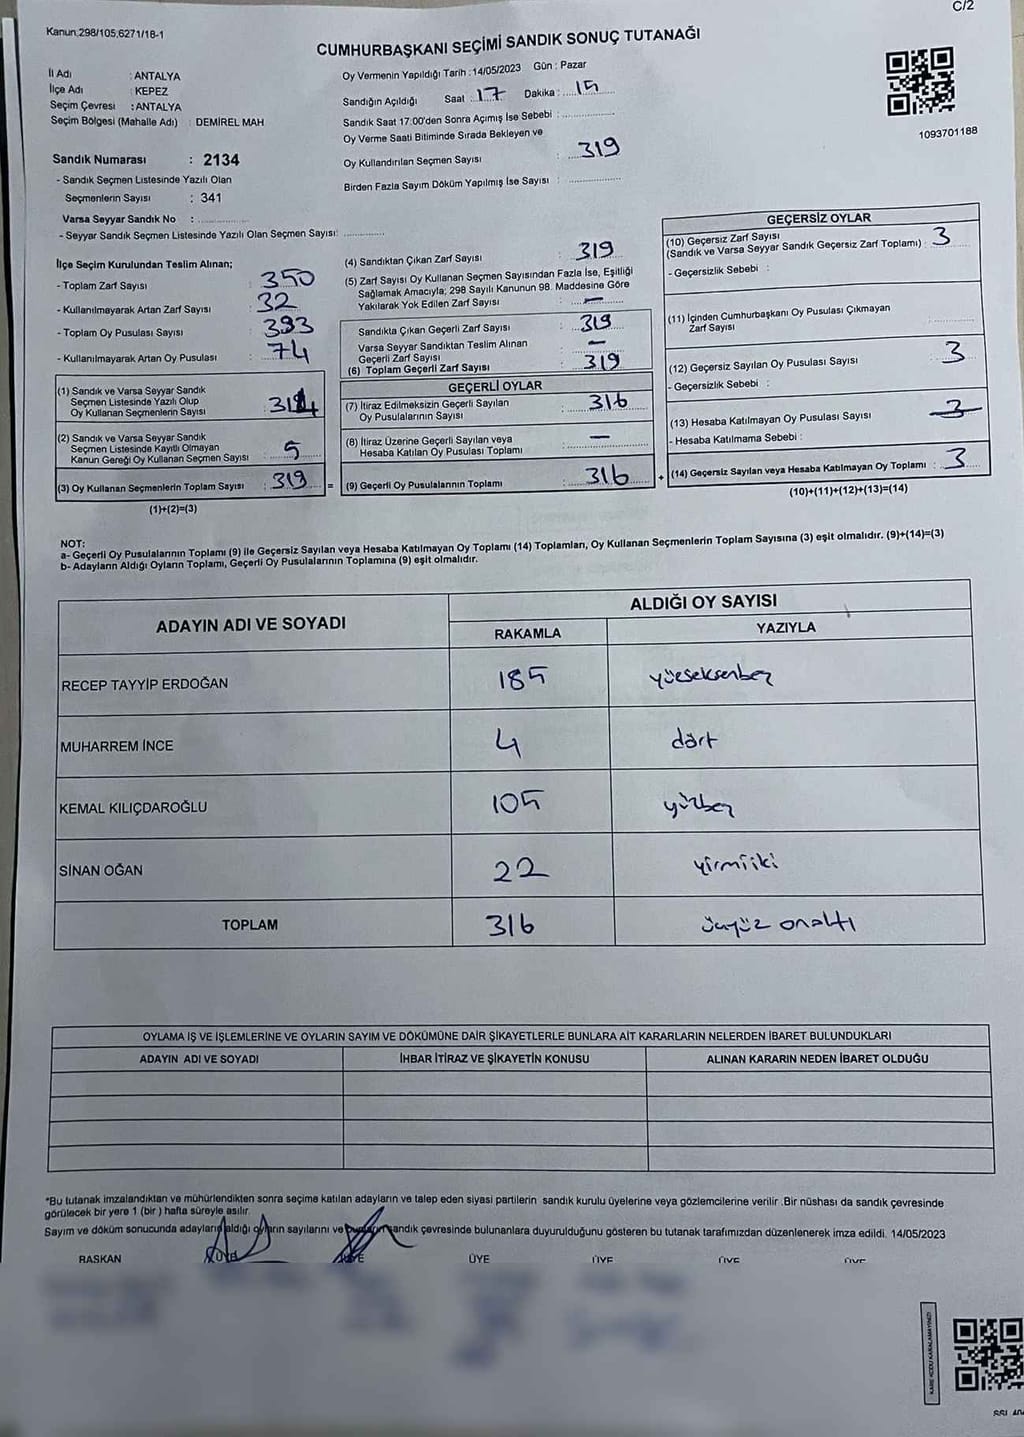 C/2
Kanun.298/105,6271/18-1
CUMHURBAŞKANI SEÇİMİ SANDIK SONUÇ TUTANAĞI
İl Adı : ANTALYA
İlçe Adı : KEPEZ
Seçim Çevresi : ANTALYA
Seçim Bölgesi (Mahalle Adı) : DEMİREL MAH
Sandık Numarası : 2134
- Sandık Seçmen Listesinde Yazılı Olan
Seçmenlerin Sayısı : 341
Varsa Seyyar Sandık No : ..............
- Seyyar Sandık Seçmen Listesinde Yazılı Olan Seçmen Sayısı: ............
Oy Vermenin Yapıldığı Tarih : 14/05/2023 Gün : Pazar
Sandığın Açıldığı Saat 17 Dakika : 15
Sandık Saat 17:00'den Sonra Açımış İse Sebebi : ..............
Oy Verme Saati Bitiminde Sırada Bekleyen ve
Oy Kullandırılan Seçmen Sayısı : 319
Birden Fazla Sayım Döküm Yapılmış İse Sayısı : ..............
1093701188
İlçe Seçim Kurulundan Teslim Alınan;
- Toplam Zarf Sayısı : 350
- Kullanılmayarak Artan Zarf Sayısı : 32
- Toplam Oy Pusulası Sayısı : 393
- Kullanılmayarak Artan Oy Pusulası : 74
(1) Sandık ve Varsa Seyyar Sandık
Seçmen Listesinde Yazılı Olup
Oy Kullanan Seçmenlerin Sayısı : 314
(2) Sandık ve Varsa Seyyar Sandık
Seçmen Listesinde Kayıtlı Olmayan
Kanun Gereği Oy Kullanan Seçmen Sayısı : 5
(3) Oy Kullanan Seçmenlerin Toplam Sayısı : 319 =
(1)+(2)=(3)
(4) Sandıktan Çıkan Zarf Sayısı : 319
(5) Zarf Sayısı Oy Kullanan Seçmen Sayısından Fazla İse, Eşitliği
Sağlamak Amacıyla; 298 Sayılı Kanunun 98. Maddesine Göre
Yakılarak Yok Edilen Zarf Sayısı : —
Sandıkta Çıkan Geçerli Zarf Sayısı : 319
Varsa Seyyar Sandıktan Teslim Alınan
Geçerli Zarf Sayısı : —
(6) Toplam Geçerli Zarf Sayısı : 319
GEÇERLİ OYLAR
(7) İtiraz Edilmeksizin Geçerli Sayılan
Oy Pusulalarının Sayısı : 316
(8) İtiraz Üzerine Geçerli Sayılan veya
Hesaba Katılan Oy Pusulası Toplamı : —
(9) Geçerli Oy Pusulalarının Toplamı : 316 +
GEÇERSİZ OYLAR
(10) Geçersiz Zarf Sayısı
(Sandık ve Varsa Seyyar Sandık Geçersiz Zarf Toplamı) : 3
- Geçersizlik Sebebi :
(11) İçinden Cumhurbaşkanı Oy Pusulası Çıkmayan
Zarf Sayısı : ..............
(12) Geçersiz Sayılan Oy Pusulası Sayısı : 3
- Geçersizlik Sebebi :
(13) Hesaba Katılmayan Oy Pusulası Sayısı : 3
- Hesaba Katılmama Sebebi :
(14) Geçersiz Sayılan veya Hesaba Katılmayan Oy Toplamı : 3
(10)+(11)+(12)+(13)=(14)
NOT:
a- Geçerli Oy Pusulalarının Toplamı (9) ile Geçersiz Sayılan veya Hesaba Katılmayan Oy Toplamı (14) Toplamları, Oy Kullanan Seçmenlerin Toplam Sayısına (3) eşit olmalıdır. (9)+(14)=(3)
b- Adayların Aldığı Oyların Toplamı, Geçerli Oy Pusulalarının Toplamına (9) eşit olmalıdır.
ADAYIN ADI VE SOYADI
ALDIĞI OY SAYISI
RAKAMLA YAZIYLA
RECEP TAYYİP ERDOĞAN 185 yüzseksenbeş
MUHARREM İNCE 4 dört
KEMAL KILIÇDAROĞLU 105 yüzbeş
SİNAN OĞAN 22 yirmiiki
TOPLAM 316 üçyüz onaltı
OYLAMA İŞ VE İŞLEMLERİNE VE OYLARIN SAYIM VE DÖKÜMÜNE DAİR ŞİKAYETLERLE BUNLARA AİT KARARLARIN NELERDEN İBARET BULUNDUKLARI
ADAYIN ADI VE SOYADI İHBAR İTİRAZ VE ŞİKAYETİN KONUSU ALINAN KARARIN NEDEN İBARET OLDUĞU
*Bu tutanak imzalandıktan ve mühürlendikten sonra seçime katılan adayların ve talep eden siyasi partilerin sandık kurulu üyelerine veya gözlemcilerine verilir .Bir nüshası da sandık çevresinde
görülecek bir yere 1 (bir ) hafta süreyle asılır.
Sayım ve döküm sonucunda adayların aldığı oyların sayılarını ve bunların sandık çevresinde bulunanlara duyurulduğunu gösteren bu tutanak tarafımızdan düzenlenerek imza edildi. 14/05/2023
BAŞKAN ÜYE ÜYE ÜYE ÜYE ÜYE ÜYE
KARE KODU KARALAMAYINIZ!